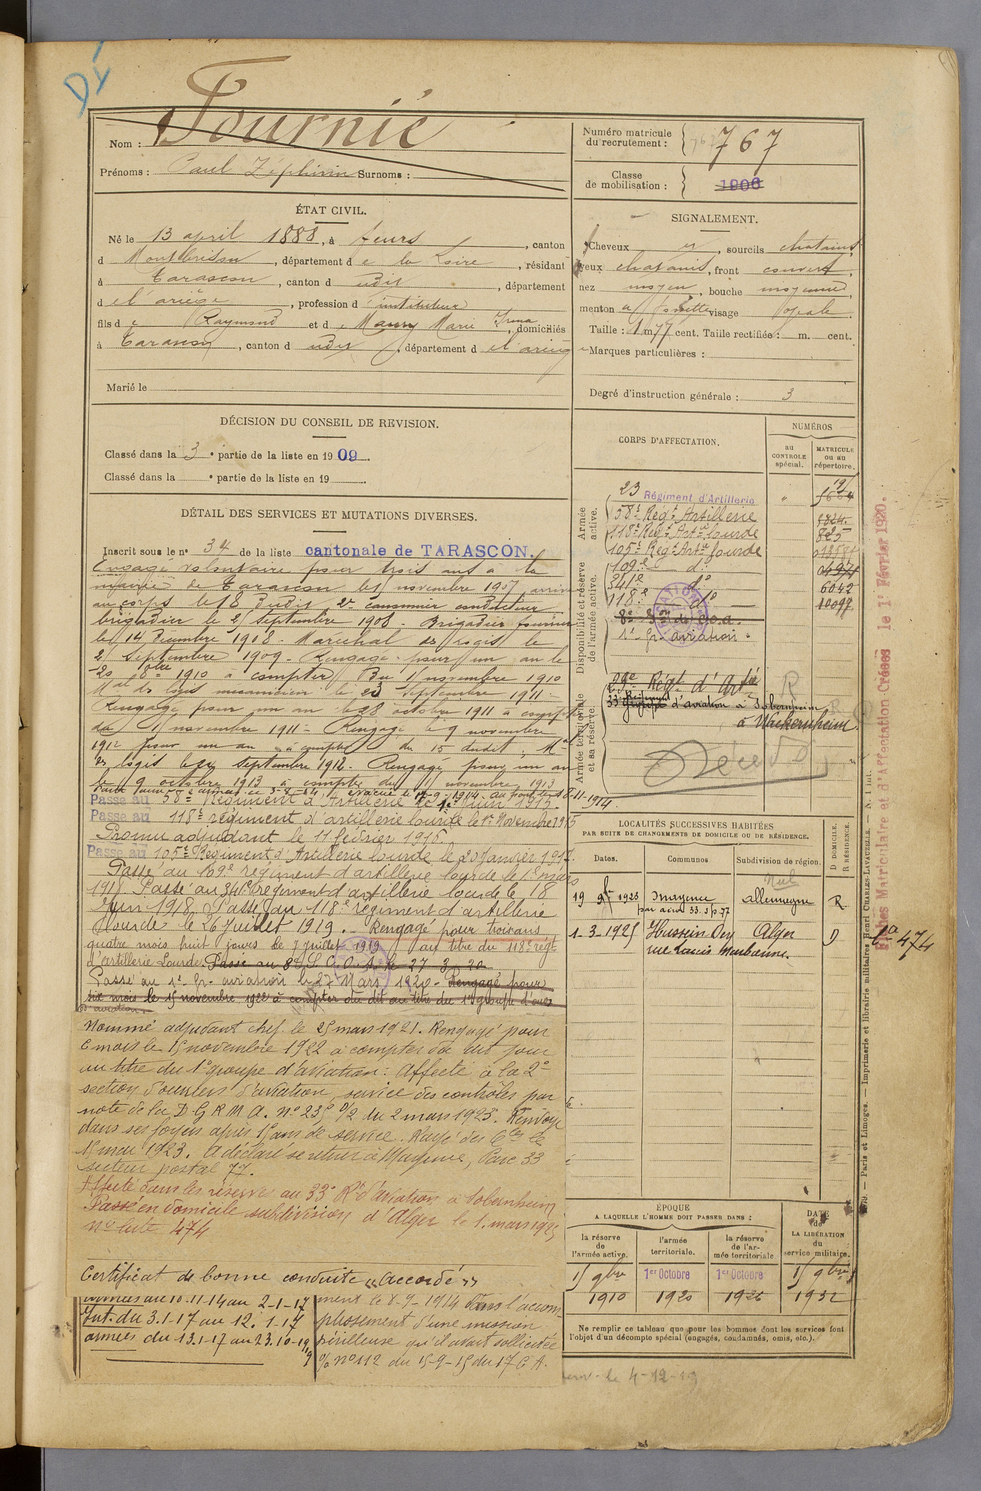 DÉ
Nom : Fournié
Prénoms : Paul Zéphirin Surnoms :
Numéro matricule du recrutement : 767
Classe de mobilisation : 1906
ÉTAT CIVIL.
Né le 13 april 1888, à Feurs, canton
d Montbrison, département d e la Loire, résidant
à Tarascon, canton d udit, département
d el'ariège, profession d instituteur
fils d e Raymond et d e Maury Marie Irma, domiciliés
à Tarascon, canton d udit, département d el'ariège
Marié le
SIGNALEMENT.
Cheveux, sourcils chatains
yeux chatains, front couvert,
nez moyen, bouche moyenne,
menton à fossette visage ovale
Taille : 1 m 77 cent. Taille rectifiée : m. cent.
Marques particulières :
Degré d'instruction générale : 3
DÉCISION DU CONSEIL DE REVISION.
Classé dans la 3e partie de la liste en 1909.
Classé dans la e partie de la liste en 19
DÉTAIL DES SERVICES ET MUTATIONS DIVERSES.
Inscrit sous le no 34 de la liste cantonale de TARASCON.
Engagé volontaire pour trois ans à la
mairie de Tarascon le 1 novembre 1907 arrivé
au corps le 18 dudit 2e canonnier conducteur
brigadier le 2 septembre 1908. Brigadier fourrier
le 14 Décembre 1908. Maréchal des logis le
2 Septembre 1909. Rengagé pour un an le
20 8bre 1910 à compter du 1 novembre 1910
Mal des logis mécanicien le 23 septembre 1911
Rengagé pour un an le 28 octobre 1911 à compter
du 1 novembre 1911. Rengagé le 9 novembre
1912 pour un an à compter du 15 dudit, Mal
des logis le septembre 1912. Rengagé pour un an
le 9 octobre 1913 à compter du novembre 1913
Passé au 58e Régiment d'Artillerie le 1er Juin 1915.
Passé au 118e régiment d'artillerie lourde le 1er Novembre 1915
Promu adjudant le 11 février 1916
Passé au 105e Régiment d'Artillerie lourde le 20 janvier 1917.
Passé au 109e régiment d'artillerie lourde le 1er mars
1918 Passé au 341e régiment d'artillerie lourde le 18
Juin 1918. Passé au 118e régiment d'artillerie
lourde le 26 juillet 1919. Rengagé pour trois ans
quatre mois huit jours le 7 juillet 1919 au titre du 118e régt
d'artillerie Lourde. Passé au 8e S. O. A. le 27-3-20
Passé au 1er Gr. aviation le 27 Mars 1920. Rengagé pour
six mois le 15 novembre 1922 à compter du dit au titre du 1er groupe d'ouv
d'aviation.
Nommé adjudant chef le 25 mars 1921. Rengagé pour
6 mois le 15 novembre 1922 à compter du dit jour
au titre du 1er groupe d'aviation : Affecté à la 2e
section d'ouvriers d'aviation, service des contrôles par
note de la D.G.R.M.A. no 235 9/2 du 2 mars 1923. Renvoyé
dans ses foyers après 15 ans de service. Rayé des Ctes le
15 mai 1923. A déclaré se retirer à Mayence, Parc 33
secteur postal 77.
Affecté dans les réserves au 33e Rt d'aviation à Gobenheim
Passé en domicile subdivision d'Alger le 1. mars 1925
No liste 474
Certificat de bonne conduite "Accordé"
armées du 10-11-14 au 2-1-17
Int. du 3.1-17 au 12.1-17
armées du 13.1-17 au 23.10-1919
ment le 8-9-1914 dans l'accom-
plissement d'une mission
périlleuse qu'il avait sollicitée
% No 112 du 15-9-15 du 17 C.A.
CORPS D'AFFECTATION.
NUMÉROS
au CONTROLE spécial.
MATRICULE OU AU répertoire.
Armée active.
23 Régiment d'Artillerie
58e Régt Artillerie
118e Régt Artie lourde
105e Régt Artie lourde
825
Disponibilité et réserve de l'armée active.
109e — do
341e do 6042
118e do 10097
8e Son de C.O.A.
1er Gr. aviation
Armée territoriale et sa réserve.
29e Régt d'Artie R
33e Régiment d'aviation à Gobernheim
à Wackernheim
Décédé
LOCALITÉS SUCCESSIVES HABITÉES
PAR SUITE DE CHANGEMENTS DE DOMICILE OU DE RÉSIDENCE.
Dates.
Communes
Subdivision de région.
D DOMICILE.
R RÉSIDENCE.
1923 Mayence Allemagne R
1.3.1925 Hussein Dey Alger D
rue Louis Maubanne.
ÉPOQUE
A LAQUELLE L'HOMME DOIT PASSER DANS :
DATE de LA LIBÉRATION du service militaire.
la réserve de l'armée active.
l'armée territoriale.
la réserve de l'armée territoriale
15 9bre 1910
1er Octobre 1920
1er Octobre 1926
15 9bre 1932
Ne remplir ce tableau que pour les hommes dont les services font
l'objet d'un décompte spécial (engagés, condamnés, omis, etc.).
le 4-12-19
Fiches Matriculaire et d'Affectation Créées le 1er Février 1920.
474
Paris et Limoges. — Imprimerie et librairie militaires Henri CHARLES-LAVAUZELLE.